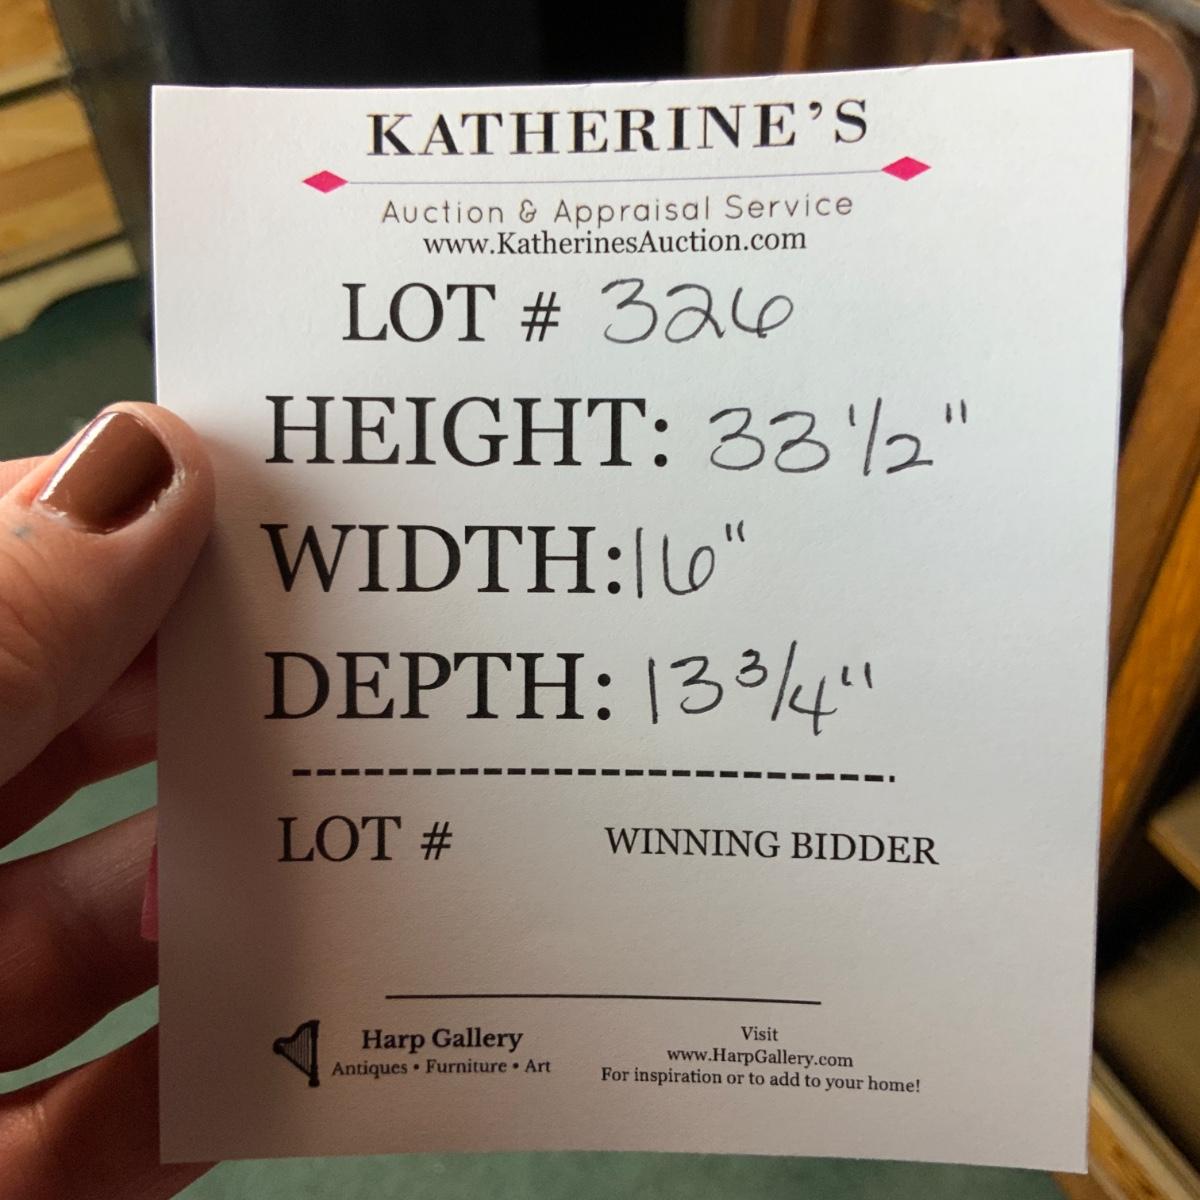 KATHERINE'S
Auction & Appraisal Service
www.KatherinesAuction.com
LOT # 326
HEIGHT: 33 1/2"
WIDTH: 16"
DEPTH: 13 3/4"
LOT # WINNING BIDDER
Harp Gallery
Antiques • Furniture • Art
Visit
www.HarpGallery.com
For inspiration or to add to your home!